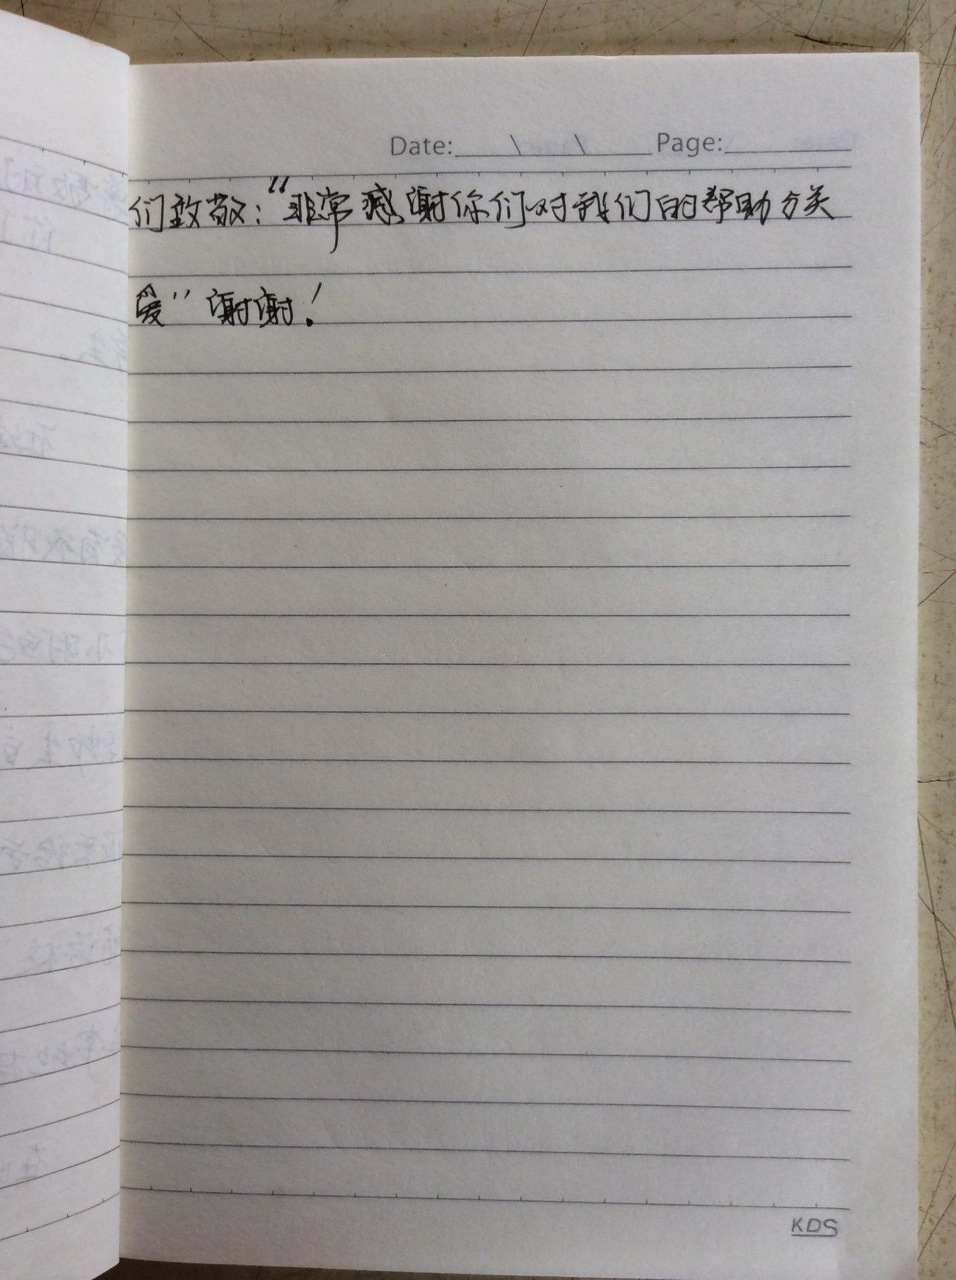 Date: \ \ Page:
们致敬："非常感谢你们对我们的帮助与关
爱"谢谢！
KDS